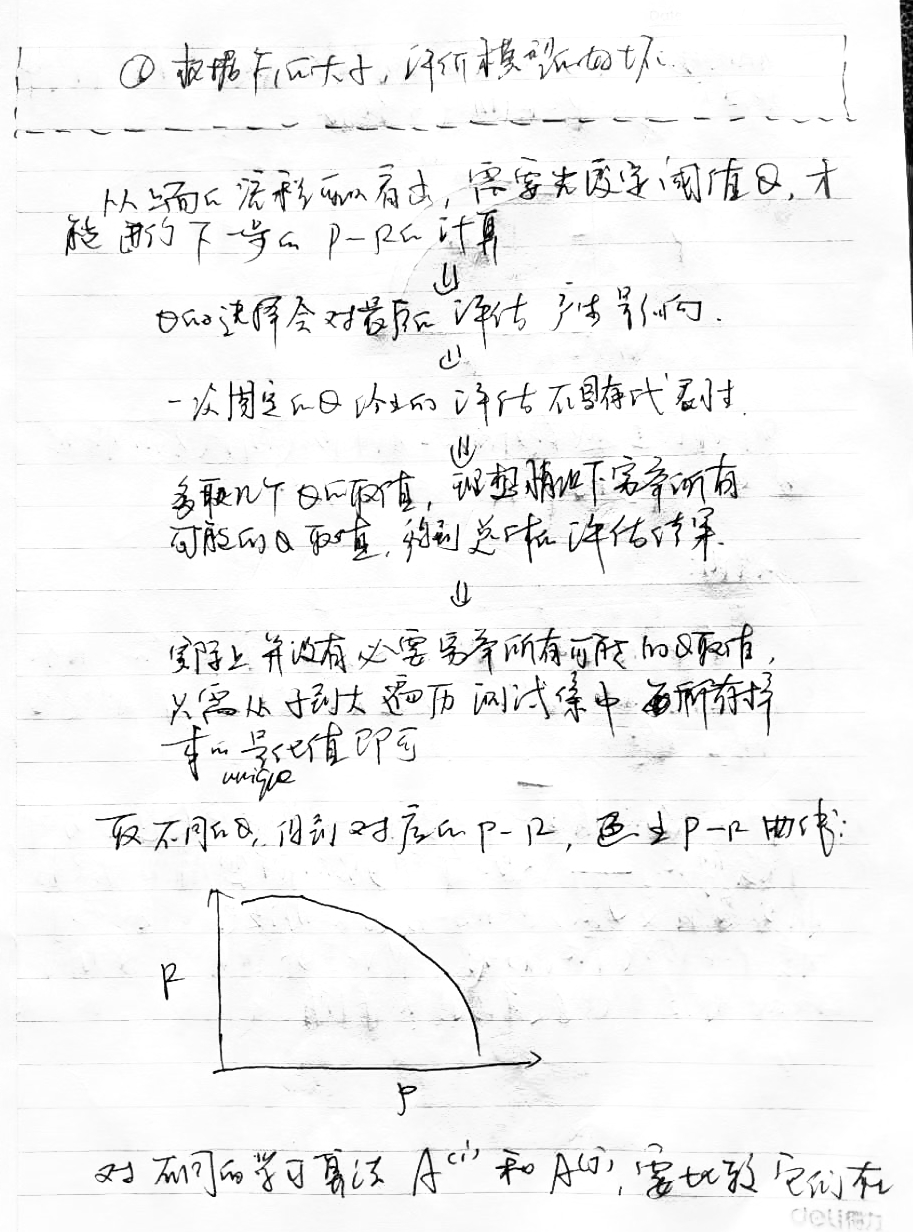 根据F1的大小,评价模型的好坏.
从上面的流程可以看出,需要先设定阈值θ,才
能进行下一步的P-R的计算
⇓
θ的选择会对最后的评估产生影响.
⇓
一次固定的θ给出的评估不具有代表性.
⇓
多取几个θ的取值,理想情况下穷举所有
可能的θ取值,得到总体的评估结果.
⇓
实际上并没有必要穷举所有可能的θ取值,
只需从小到大遍历测试集中所有样
本的量化值即可
unique
取不同的θ,得到对应的P-R,画出P-R曲线:
R
P
对不同的学习算法A(i)和A(j),要比较它们在
deli得力